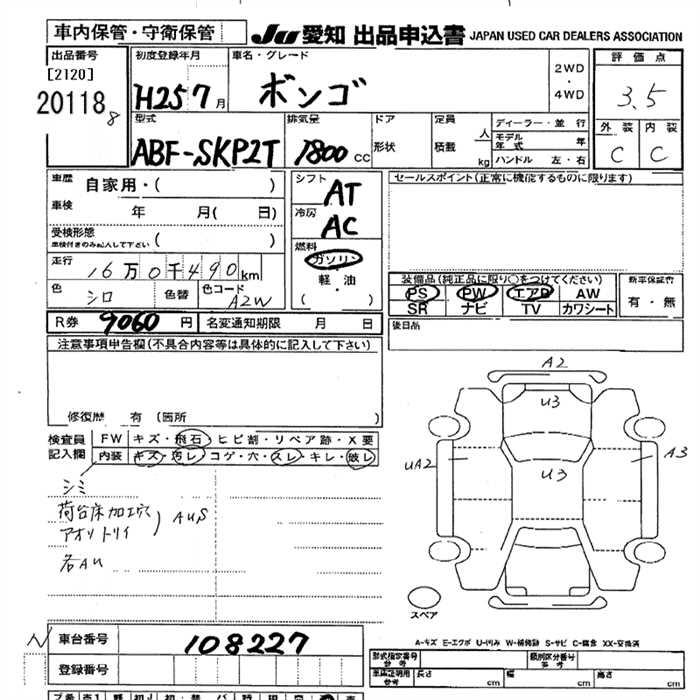 車内保管・守衛保管
JU 愛知 出品申込書 JAPAN USED CAR DEALERS ASSOCIATION
出品番号
[2120]
20118
8
初度登録年月
H25 7月
車名・グレード
ボンゴ
2WD
・
4WD
評価点
3.5
型式
ABF-SKP2T
排気量
1800 cc
ドア
形状
定員
人
積載
kg
ディーラー・並行
モデル年式 年
ハンドル 左・右
外装
C
内装
C
車歴
自家用・( )
車検
年 月( 日)
受検形態
車検付きのみ記入して下さい ( )
走行
16万0千490km
色
シロ
色替
色コード
A2W
シフト
AT
冷房
AC
燃料
ガソリン
軽・油
( ・ )
セールスポイント(正常に機能するものに限ります)
装備品(純正品に限り○をつけてください)
PS PW エアB AW
SR ナビ TV カワシート
新車保証書
有・無
後日品
R券 9060 円 名変通知期限 月 日
注意事項申告欄(不具合内容等は具体的に記入して下さい)
修復歴 有 (箇所 )
検査員記入欄
FW キズ・飛石・ヒビ割・リペア跡・X要
内装 キズ・汚レ・コゲ・穴・スレ・キレ・破レ
シミ
荷台床加工穴
アオリトリイ
AUS
各AU
A2
U3
UA2
U3
A3
スペア
A-キズ E-エクボ U-凹み W-補修跡 S-サビ C-腐食 XX-交換済
車台番号 108227
登録番号
型式指定番号
参考
類別区分番号
参考
車庫証明用
参考
長さ cm
幅 cm
高さ cm